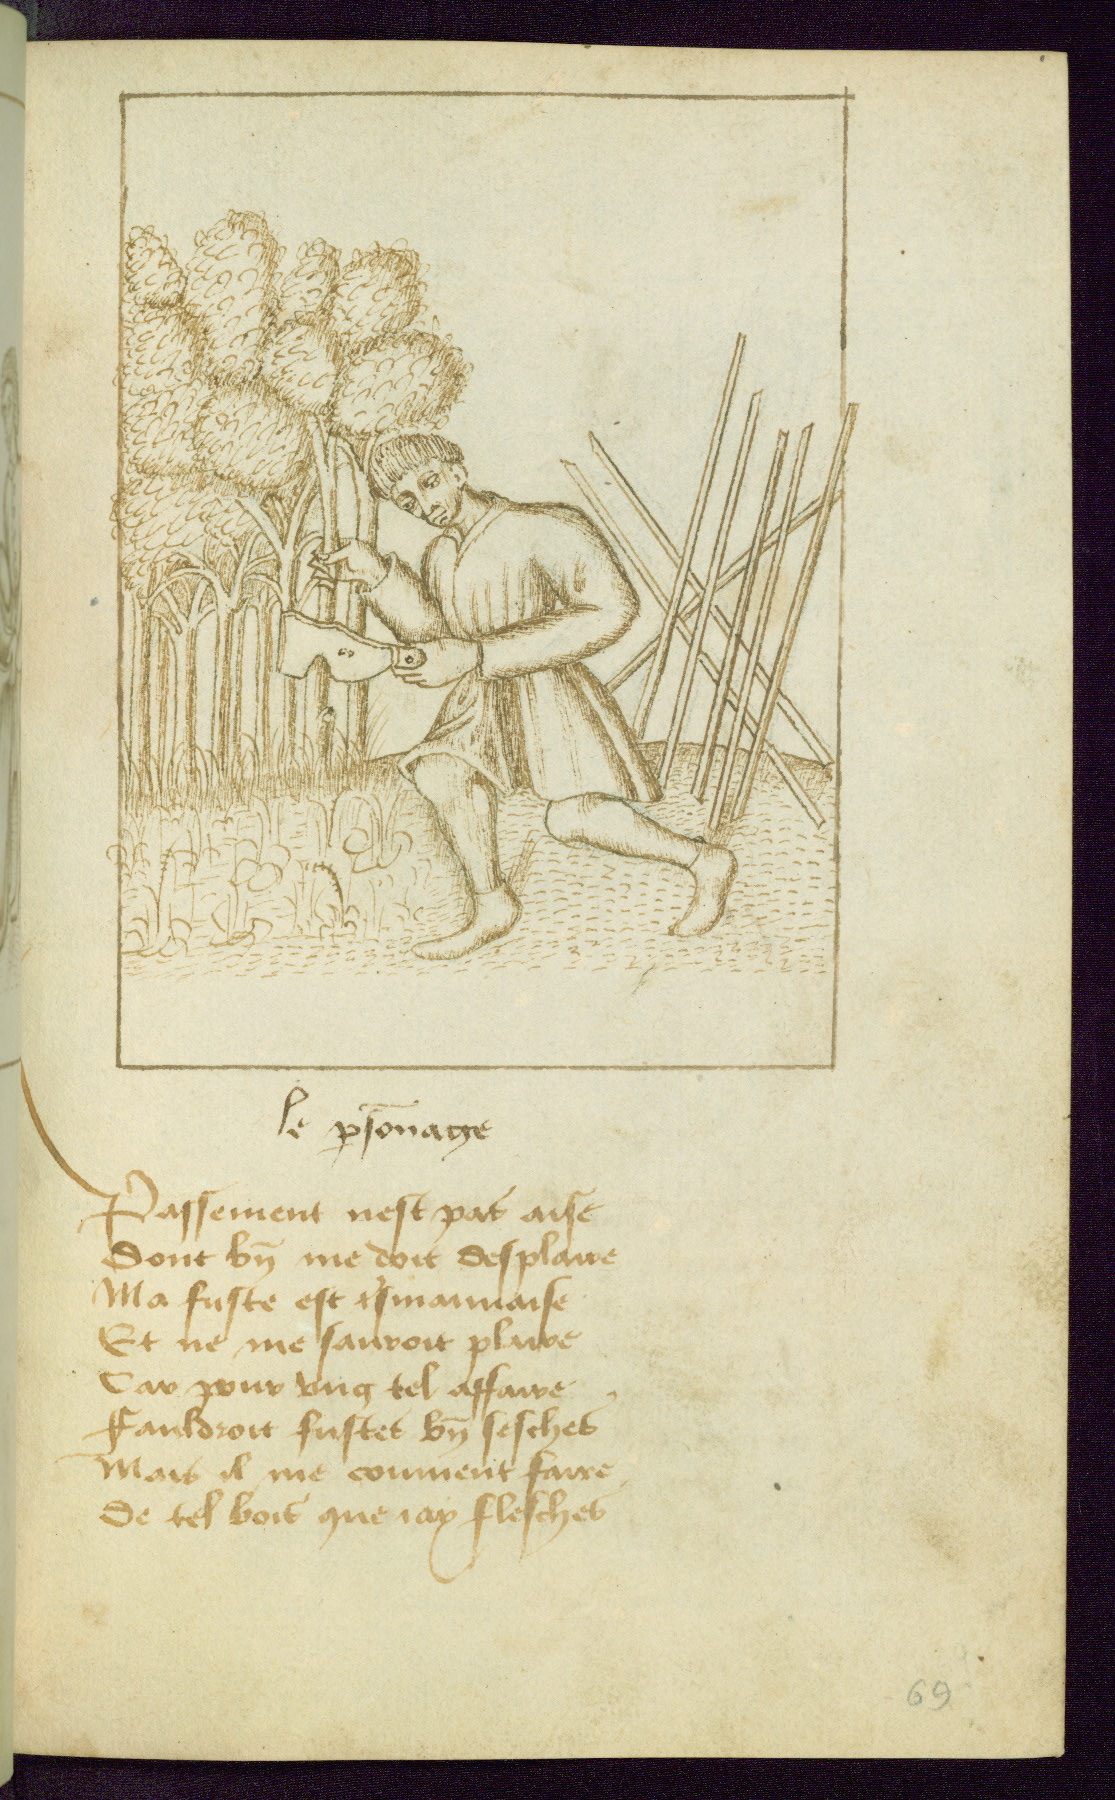 le psonage
Passement nest pas aise
Dont bn me doit desplaire
Ma fuste est mauuaise
Et ne me sauroit plaire
Car pour ung tel affaire
Fauldroit fustes bn sesches
Mais il me conuient faire
De tel bois que iay flesches
69